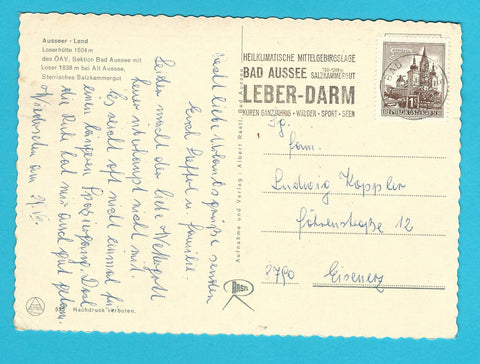 Ausseer - Land
Loserhütte 1504 m
des ÖAV, Sektion Bad Aussee mit
Loser 1838 m bei Alt Aussee,
Steirisches Salzkammergut
Recht liebe Urlaubsgrüße senden
Euch u Familie.
Leider macht der liebe Wettergott
heuer überhaupt nicht mit.
Es reicht oft nicht einmal für
einen längeren Spaziergang. Doch
die Ruhe hat mir auch gut getan.
Wiedersehn am
Nachdruck verboten.
Aufnahme und Verlag: Albert Rastl, Bad Aussee
RASTL
HEILKLIMATISCHE MITTELGEBIRGSLAGE
BAD AUSSEE
SALZKAMMERGUT
LEBER-DARM
KUREN GANZJÄHRIG - WÄLDER - SPORT - SEEN
BAD
REPUBLIK ÖSTERREICH
Fam.
Ludwig Koppler
Föhrenstraße 12
8790 Eisenerz